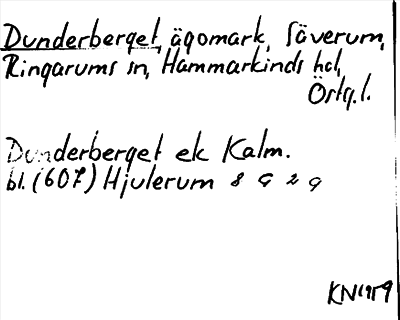 Dunderberget, ägomark, Säverum,
Ringarums sn, Hammarkinds hd,
Östg.l.
Dunderberget ek Kalm.
bl. (607) Hjulerum 8 G 2 g
KN 1959